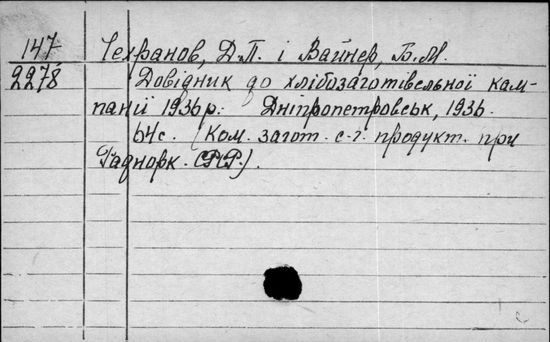 147
2278
Чехранов, Д.П. і Вайнер, Б.М.
Довідник до хлібозаготівельної кам-
панії 1936 р. Дніпропетровськ, 1936.
64 с. (Ком. загот. с.-г. продукт. при
Раднорк. СРСР).